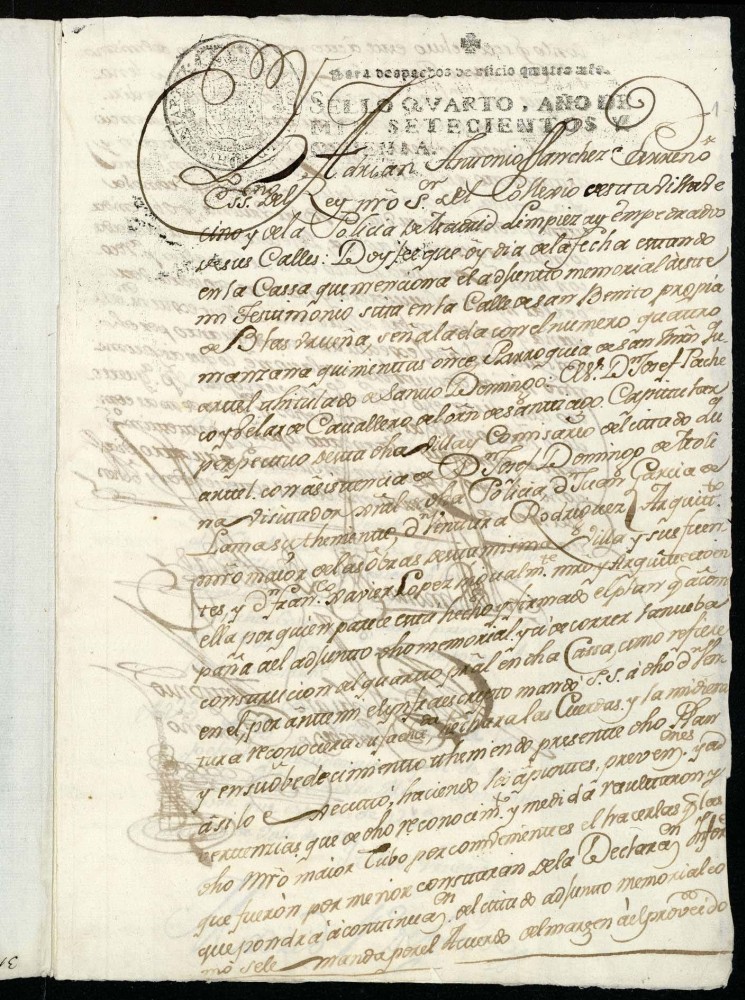 Para despachos de oficio quatro mrs.
SELLO QVARTO, AÑO DE
MIL SETECIENTOS Y
OCHENTA.
Adrian Antonio Sanchez Carreño
Essno. del Rey nro Sr. del Collexio desta Villa de
y de la Policia de Madrid Limpieza y empedrado
de sus Calles: Doy fee que oy dia de la fecha estando
en la Cassa que menciona el adjunto memorial deste
mi Testimonio sita en la Calle de san Benito propia
de Blas señalada con el numero quatro
manzana quinientas once, Parroquia de san Mrn. qu
artel titulado de Santo Domingo: El Sr. Dn. Josef Pache
co y Velarde Cavallero del orn. de Santiago Capitular
perpetuo desta dha Villa y Comisario del citado qu
artel. con asistencia de Dn. Josef Domingo de Moli
na Visitador gral. de dha Policia, dn. Juan Garcia de
Lama su thente. dn. Ventura Rodriguez Arquitto.
mro maior de las obras desta misma Villa y sus fuen
tes, y dn. Franco. Xavier Lopez igualmte. mro y Arquitecto en
ella por quien parece esta hecho y firmado el plan q. acom
paña a el adjunto dho memorial, y a de correr la nueba
construcion del quarto pral. en dha Cassa, como refiere
en el, por ante mi el infraescripto mando S.S. a dho dn. Ven
tura reconociera hechara las Cuerdas, y la midiera
y en su obedecimiento teniendo presente dho Plan
asi lo executó, haciendo los apuntes, prevenes. y ad
vertencias que de dho reconocimto. y medida resultaron y
dho Mro maior tubo por combenientes el hacerlas q. las
que fueron por menor constaran de la Declaran. Infor
que pondrá a continuan. del citado adjunto memorial co
mo se le manda por el Acuerdo del margen del proveido